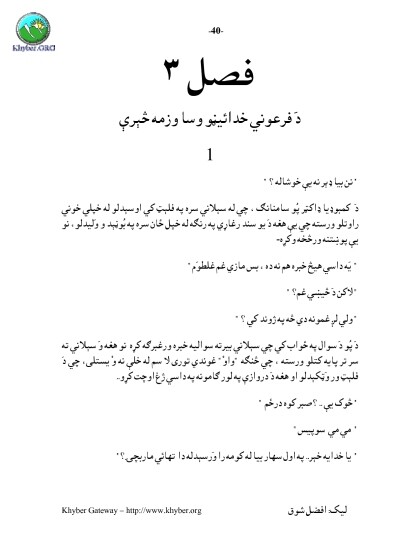 Khyber.ORG
-40-
فصل ۳
دَ فرعوني خدائيڼو وسا وزمه څېرې
1
" نن بيا ډېر نه يې خوشاله ؟ "
دَ کمبوډيا ډاکټر پُو سامنانګ ، چې له سيلانې سره په فليټ کې اوسېدلو له خپلې خونې
راوتلو ورسته چې يې هغه دَ يو سند رغاړې په رنګه له خپل ځان سره په بُوڼېد و وليدلو ، نو
يې پوښتنه ورڅخه وکړه-
" يَه داسې هيڅ خبره هم نه ده ، بس مازې غم غلطوَم "
"لاکن دَ څيښي غم؟ "
"ولې لږ غمونه دي څه په ژوند کې ؟ "
دَ پُو دَ سوال په ځواب کې چې سيلانې بيرته سواليه خبره ورغبرګه کړه نو هغه وَ سيلانې ته
سر تر پايه کتلو ورسته ، چې څنګه "واو" غوندې تورى لا سم له خلې نه وُ يستلى، چې دَ
فليټ ور وَټکېدلو او هغه دَ دروازې په لور ګامونه په داسې ږغ اوچت کړو..
" څوک يې ..؟ صبر کوه درځم "
" مې مې سوپيس"
" يا خدايه خېر.. په اول سهار بيا له کومه را وَرسېدله دا تهائي ماربچۍ.؟ "
Khyber Gateway – http://www.khyber.org
ليک: افضل شوق